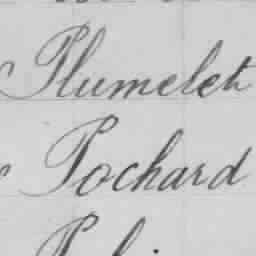 Plumelet
Pochard